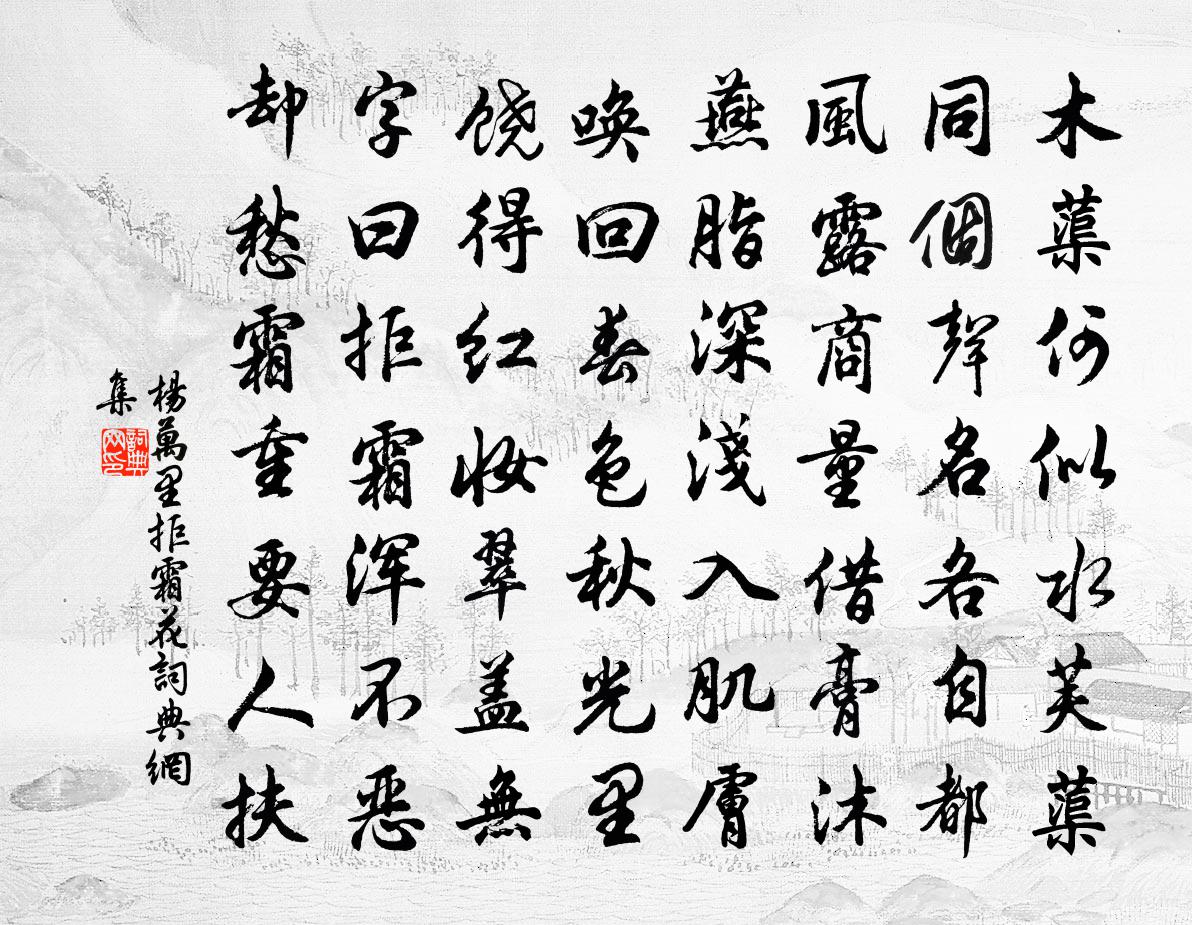 木蕖何似水芙蕖
同個声名各自都
風露商量借膏沐
燕脂深淺入肌膚
唤回春色秋光里
饶得红妆翠盖無
字曰拒霜浑不恶
却愁霜重要人扶
楊萬里拒霜花詞典網
集
詞典網印